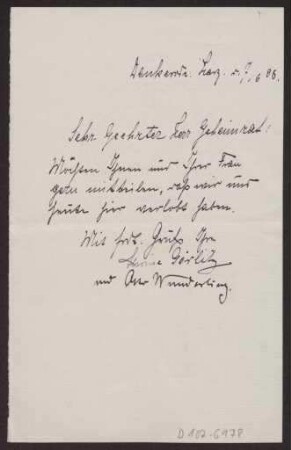 Harz. d. 7. 6 06.
Sehr Geehrter Herr Geheimrat!
Möchten Ihnen und Ihrer Frau
gern mitteilen, daß wir uns
heute hier verlobt haben.
Mit frdl. Gruß Ihre
Görlitz
und Otto Wunderling.
D 102-6978